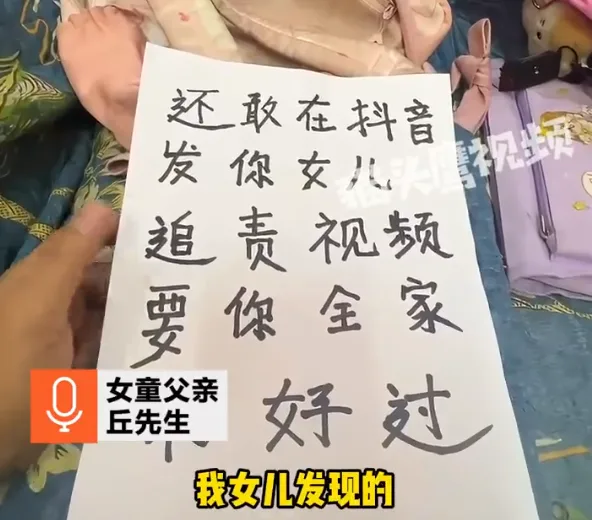 还敢在抖音
发你女儿
猫头鹰视频
追责视频
要你全家
好过
女童父亲
丘先生
我女儿发现的